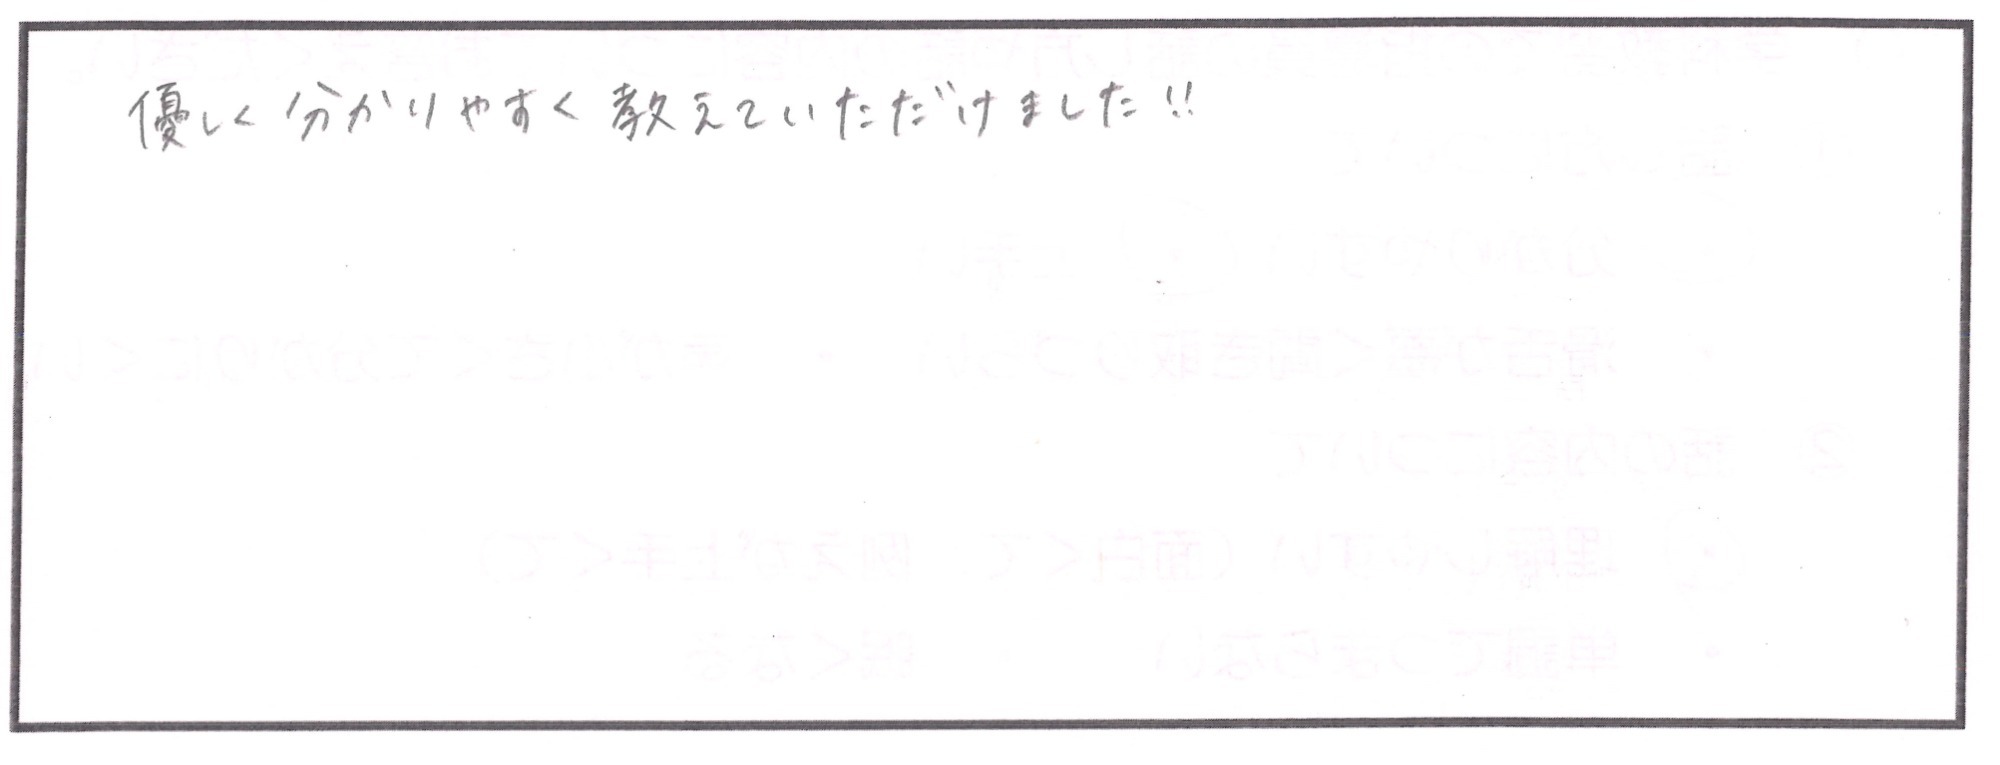 優しく分かりやすく教えていただけました!!